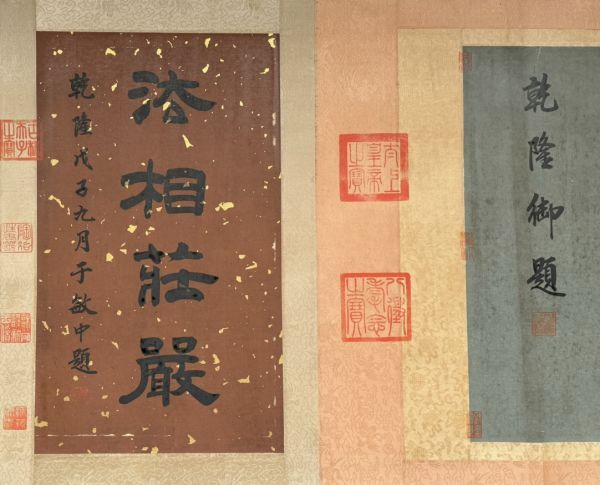 乾隆御題
太上
皇帝
之寶
八徵
耄念
之寶
法相莊嚴
乾隆戊子九月于敏中題